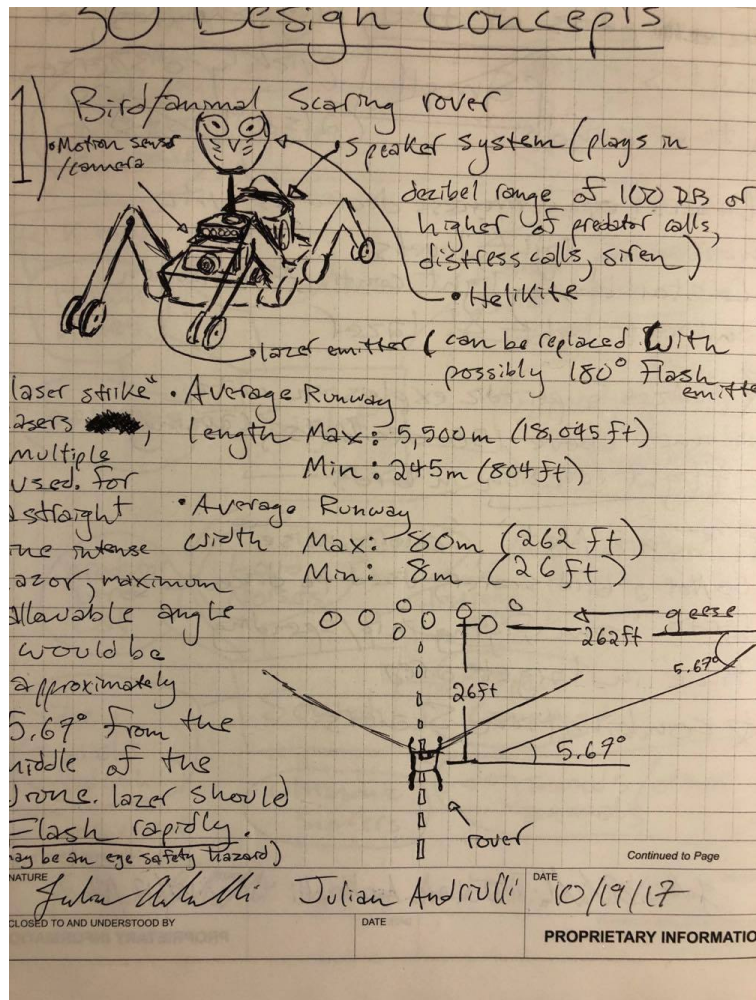 30 Design Concepts
1) Bird/animal Scaring rover
• Motion sensor
/camera
• Speaker system (plays in
decibel range of 100 DB or
higher of predator calls,
distress calls, siren)
• Helikite
• lazer emitter ( can be replaced with
possibly 180° Flash
emitte
laser strike"
asers
multiple
used. for
a straight
ine intense
azor, maximum
allowable angle
would be
approximately
5.69° from the
middle of the
drone. lazer should
Flash rapidly.
ay be an eye safety hazard)
• Average Runway
length Max: 5,500m (18,045 ft)
Min: 245m (804 ft)
• Average Runway
width Max: 80m (262 ft)
Min: 8m (26 ft)
geese
262ft
5.69°
26ft
5.69°
rover
Continued to Page
NATURE
Julian Andriulli
DATE
10/19/17
CLOSED TO AND UNDERSTOOD BY
DATE
PROPRIETARY INFORMATIO